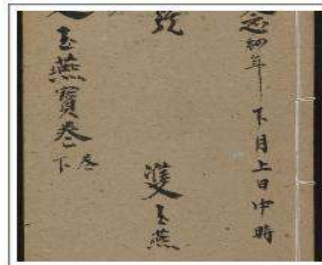 念初年下月上日中時
號 雙玉燕
玉燕寶卷 下卷